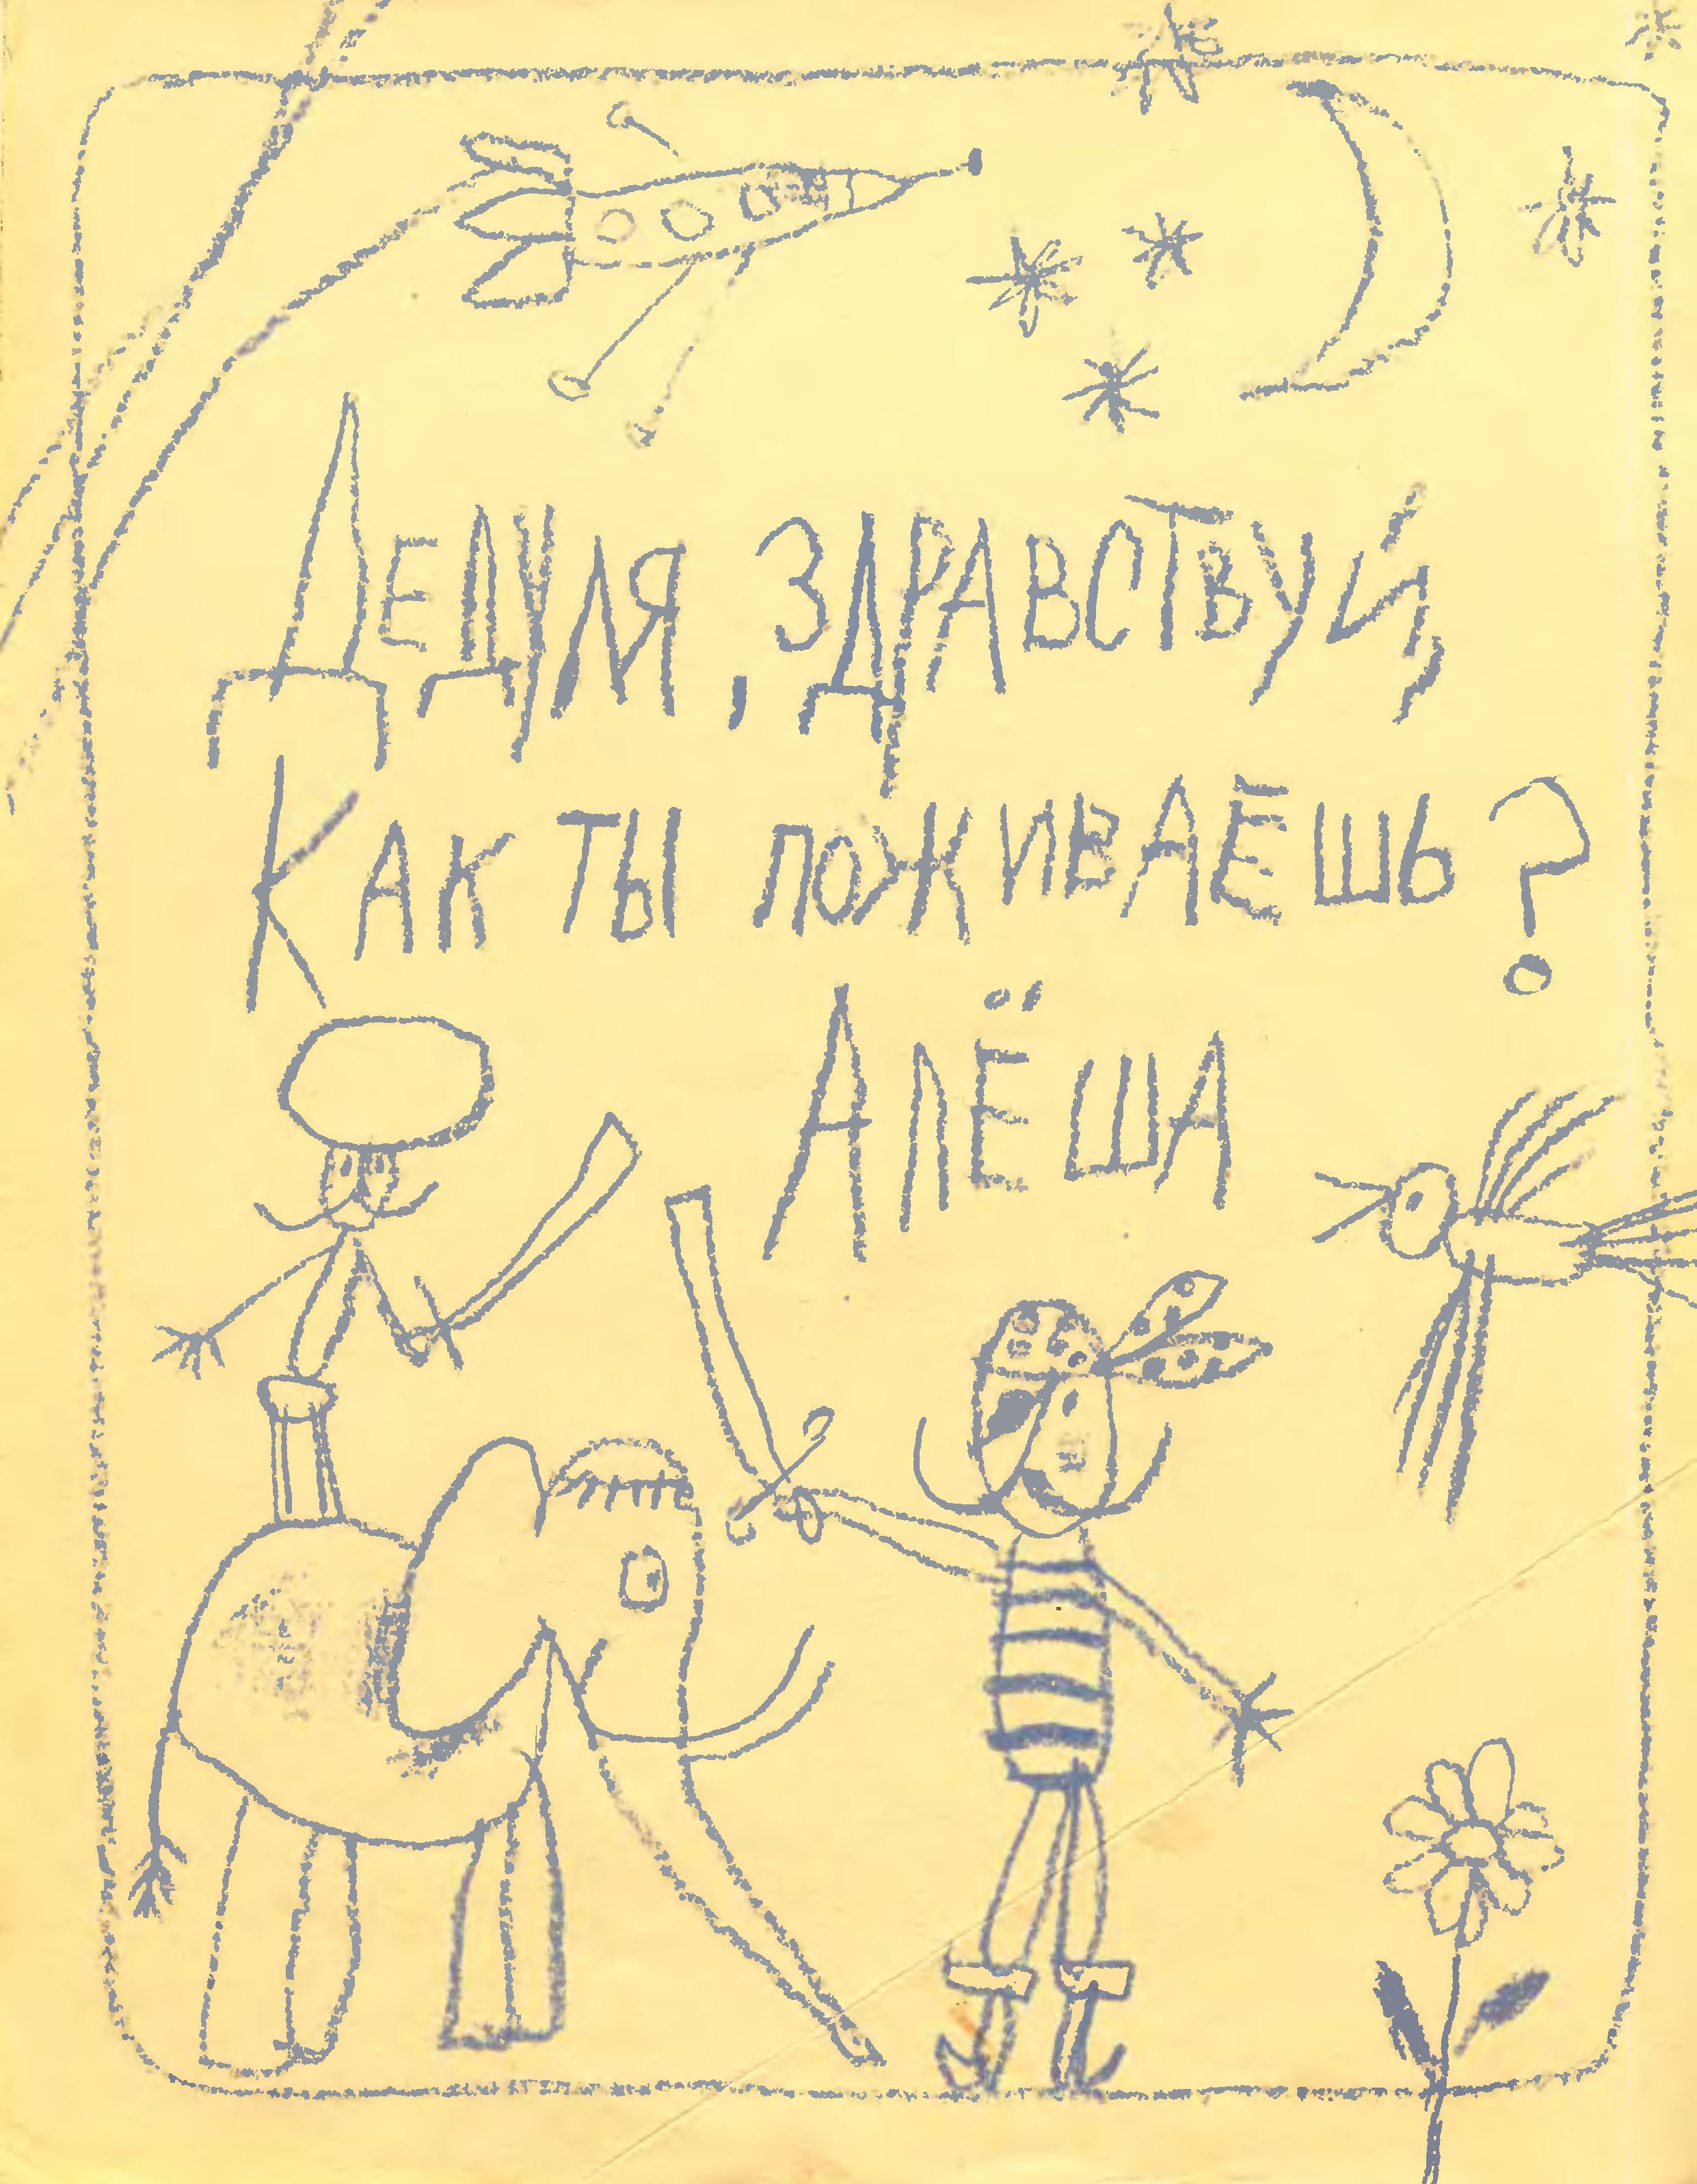 ДЕДУЛЯ, ЗДРАВСТВУЙ,
КАК ТЫ ПОЖИВАЕШЬ?
АЛЁША